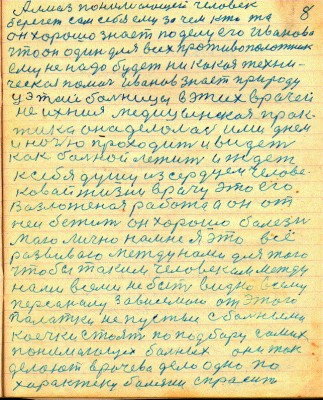 8
А тмаз понимающий человек
берегет сам себя ему за чем кто та
он хорошо знает поделу его иванова
что он один для всех противоположник
ему не надо будет ни какая техни-
ческая помоч иванов знает природу
у этай балници в этих врачей
не ихния медицинская прак-
тика она делалас или днем
и ночю проходит и видет
как балной лежит и ждет
к себя душу из сердцем челове-
ковай жизни врачу это его
возложеная работа он от
ней бежит он хорошо балезн
маю лично на мне я это всё
развиваю между нами для того
чтобы таким человекам между
нами всеми не быть видно всему
персаналу зависимаи от этого
палатки не пустые с балними
коечки стоят по подбару самих
понимающих балных они так
делают врачева дело одно по
характеру балями спрасит